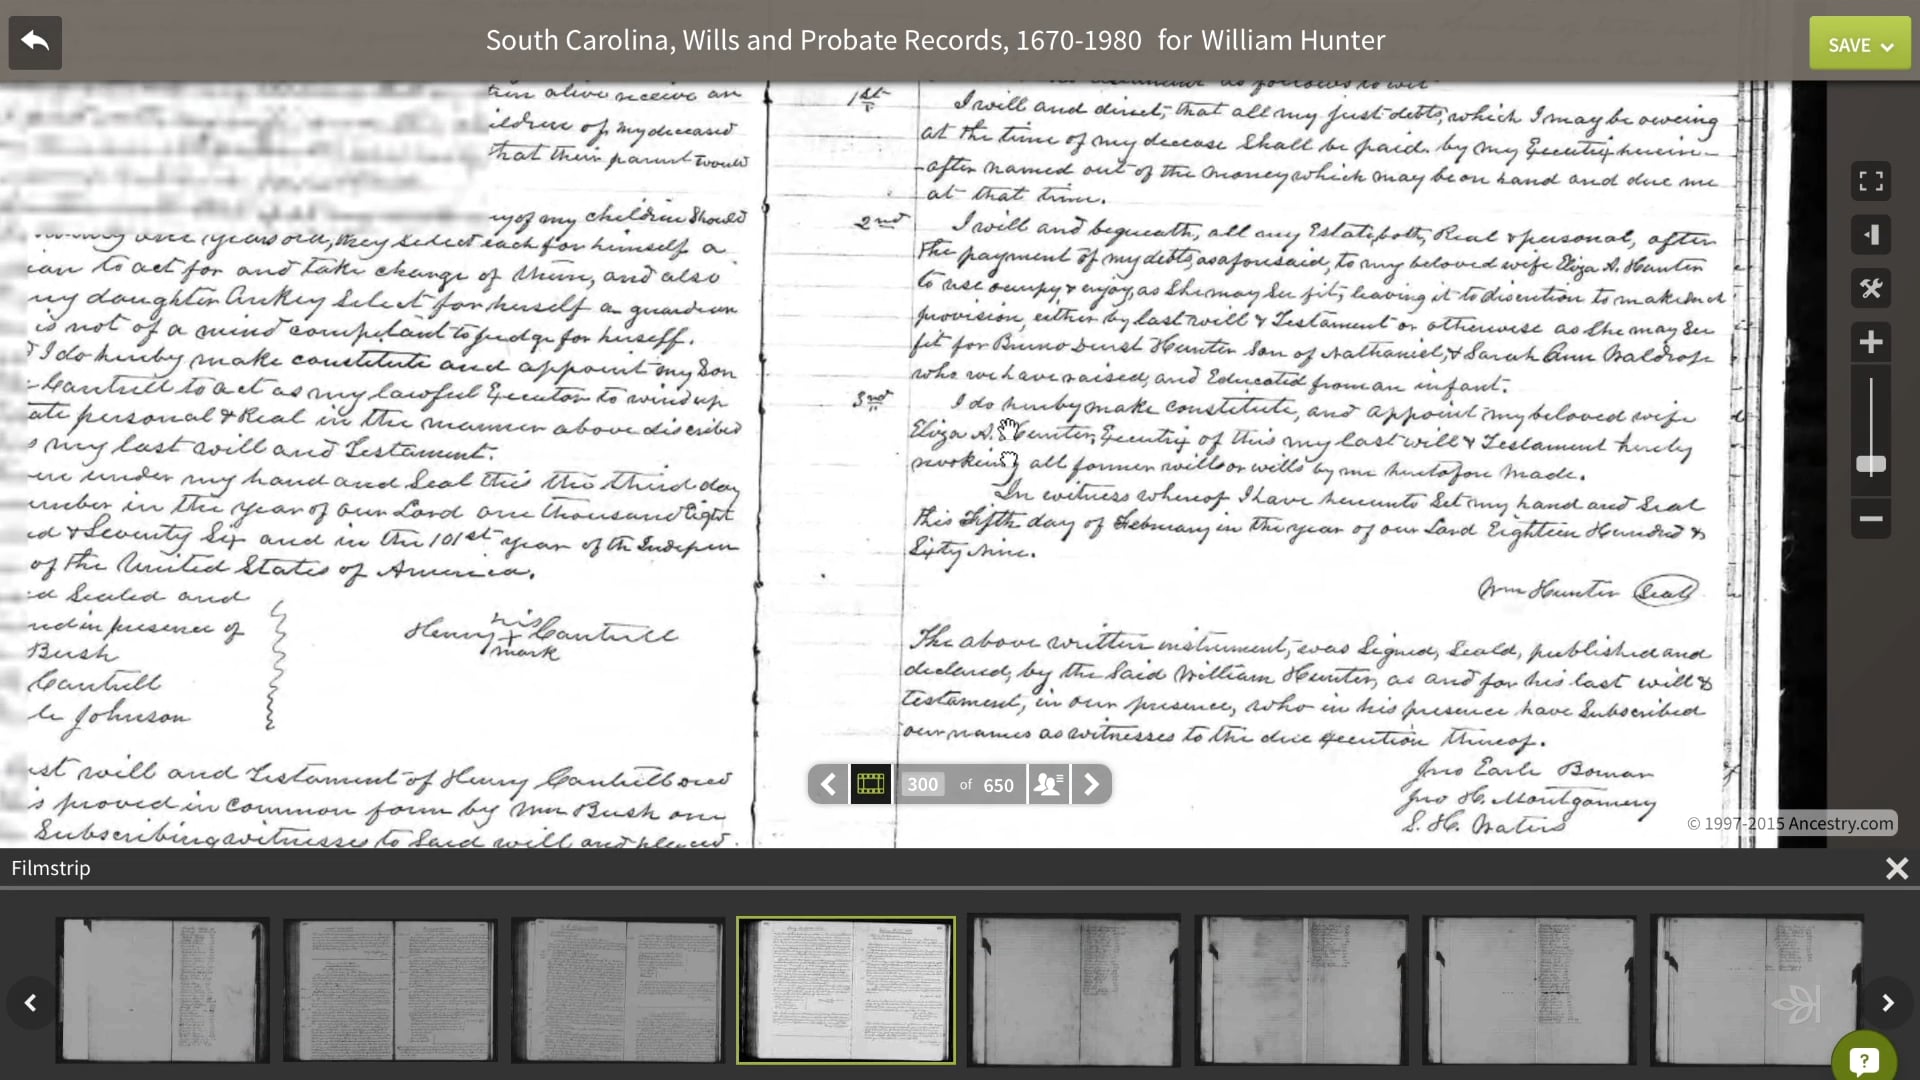 South Carolina, Wills and Probate Records, 1670-1980 for William Hunter
SAVE
then alive receive an
ildren of my deceased
that their parent would
ny of my children Should
one years old, they Select each for himself a
ian to act for and take charge of them, and also
my daughter Select for herself a guardian
is not of a mind competant to judge for herself.
I do hereby make constitute and appoint my Son
Cantrell to act as my lawful Executor to wind up
ate personal & Real in the manner above discribed
s my last will and Testament.
en under my hand and Seal this the third day
ember in the year of our Lord one thousand Eight
ed & Seventy Six and in the 101st year of the Indepen
of the United States of America.
d Sealed and
ed in presence of
Bush
Cantrell
Johnson
his
Henry + Cantrell
mark
st will and Testament of Henry Cantrell
s proved in common form by Wm Bush one
Subscribing witnesses to Said will and
as follows to wit
1st
I will and direct, that all my just debts, which I may be oweing
at the time of my decease Shall be paid by my Executrix herein
after named out of the money which may be on hand and due me
at that time.
2nd
I will and bequeath, all my Estate, both, Real & personal, after
the payment of my debts, as aforesaid, to my beloved wife Eliza A. Hunter
to use occupy & enjoy, as She may See fit, leaving it to discretion to make Such
provision, either by last will & Testament or otherwise as She may See
fit for Bruno Durst Hunter Son of Nathaniel, & Sarah Ann Waldrop
who we have raised, and Educated from an infant.
3rd
I do hereby make constitute, and appoint my beloved wife
Eliza A. Hunter, Executrix of this my last will & Testament hereby
revoking all former will or wills by me heretofore made.
In witness whereof I have hereunto Set my hand and Seal
this Fifth day of February in the year of our Lord Eighteen Hundred &
Sixty Nine.
Wm Hunter Seal
The above written instrument, was Signed, Seald, published and
declared, by the Said William Hunter, as and for his last will &
testament, in our presence, who in his presence have Subscribed
our names as witnesses to the due execution thereof.
Jno Earle Bomar
Jno H. Montgomery
S. H. Waters
300 of 650
© 1997-2015 Ancestry.com
Filmstrip